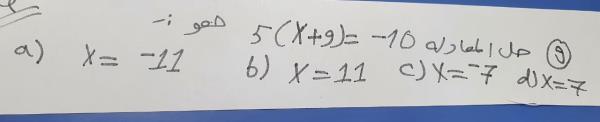 ⑨ حل المعادلة 5(x+9) = -10 هو :-
a) x = -11 b) x = 11 c) x = -7 d) x = 7